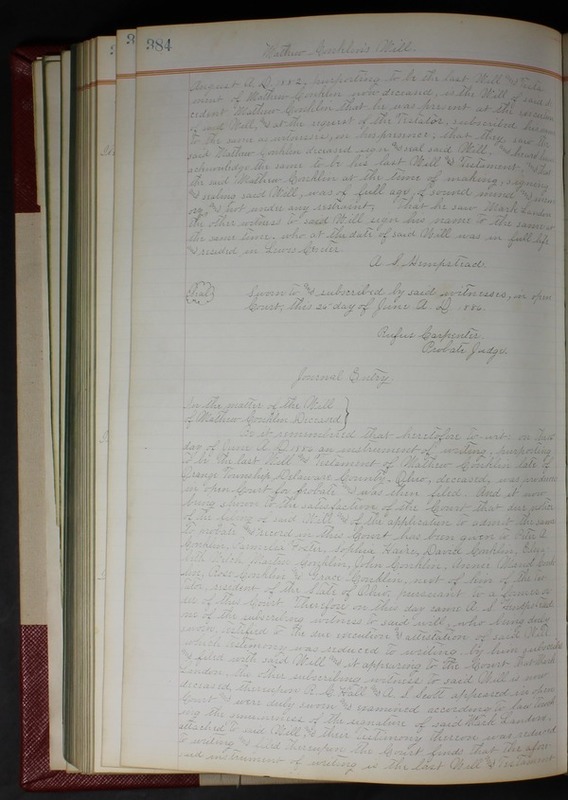 384
Mathew Conklin's Will.
August A. D. 1882, purporting to be the last Will & Testa-
ment of Mathew Conklin now deceased, is the Will of said de-
cedent Mathew Conklin that he was present at the execution
said Will, & at the request of the Testator, subscribed his name
to the same as witnesses, in his presence, that they saw the
said Mathew Conklin deceased sign & seal said Will, & heard him
acknowledge the same to be his last Will & Testament, & that
the said Mathew Conklin at the time of making, signing
& sealing said Will, was of full age, of sound mind & mem-
ory & not under any restraint, that he saw Mark Landon
the other witness to said Will sign his name to the same at
the same time, who at the date of said Will was in full life
& resided in Lewis Center.
A. S. Hempstead.
(Seal) Sworn to & subscribed by said witnesses, in open
Court, this 25 day of June A. D. 1886.
Rufus Carpenter
Probate Judge.
Journal Entry.
In the matter of the Will
of Mathew Conklin Deceased
Be it remembered that heretofore to-wit: on
day of June A. D. 1886 an instrument of writing, purporting
to be the last Will & Testament of Mathew Conklin late of
Orange Township, Delaware County, Ohio, deceased, was produced
in open Court for probate & was then filed. And it now
being shown to the satisfaction of the Court that due notice
of the filing of said Will & of the application to admit the same
to probate & record in this Court has been given to
Conklin, Foster, Sophia Haire, David Conklin,
Conklin, John Conklin,
Rose Conklin & Grace Conklin, next of kin of the tes-
tator, resident of the State of Ohio, pursuant to a former or-
der of this Court. Therefore on this day came A. S. Hempstead
one of the subscribing witness to said will, who being duly
sworn, testified to the due execution & attestation of said Will
which testimony was reduced to writing, by him subscribed
& filed with said Will & it appearing to the Court that Mark
Landon, the other subscribing witness to said Will is now
deceased, thereupon R. C. Hall & A. S. Scott appeared in open
Court & were duly sworn & examined according to law touch-
ing the genuineness of the signature of said Mark Landon,
attached to said Will & their testimony thereon was reduced
to writing & filed thereupon the Court finds that the afore-
said instrument of writing is the last Will & Testament